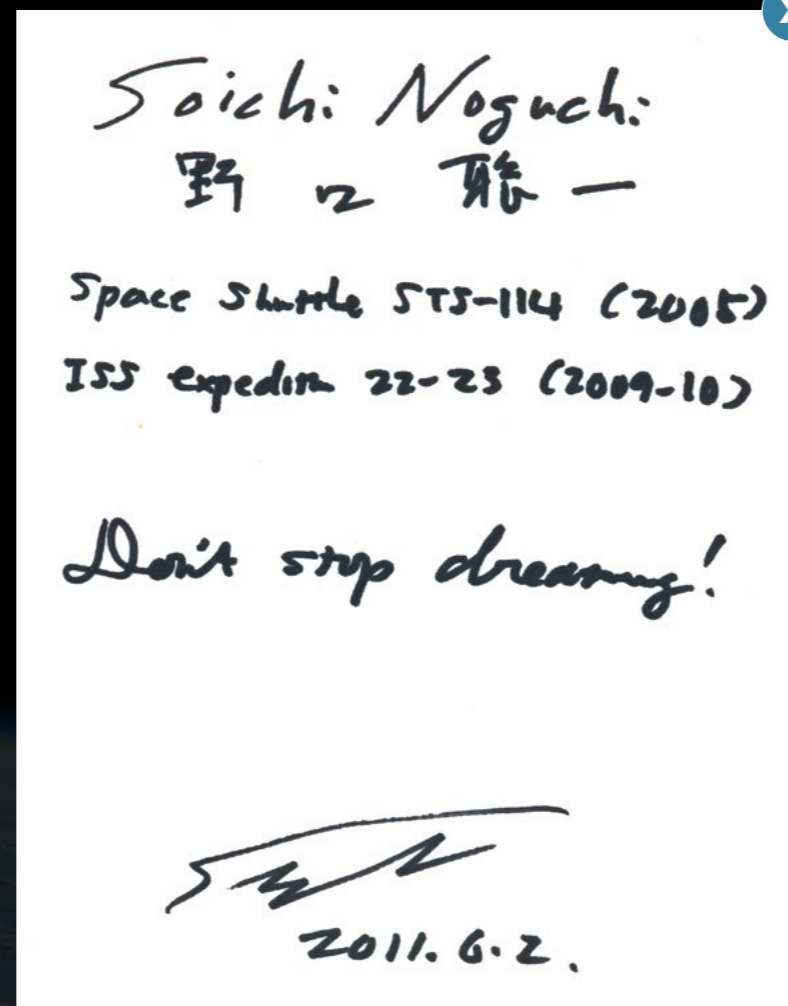 Soichi Noguchi
野口 聡一
Space Shuttle STS-114 (2005)
ISS expedition 22-23 (2009-10)
Don't stop dreaming!
2011.6.2.